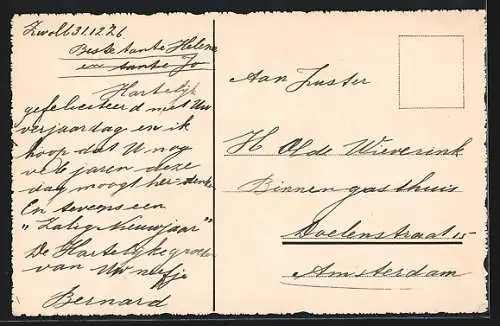 Zwolle 31.12.26
Beste tante Helena
en tante Jo
Hartelijk
gefeliciteerd met Uw
verjaardag en ik
hoop dat U nog
vele jaren deze
dag moogt her-denken
En tevens een
"Zalig Nieuwjaar"
De Hartelijke groeten
van Uw neefje
Bernard
Aan Zuster
H Olde Wieverink
Binnengasthuis
Doelenstraat 15
Amsterdam